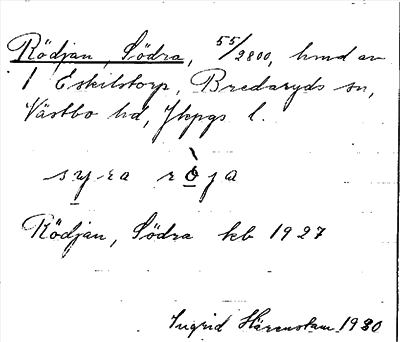 Rödjan, Södra, 55/2800, hmd av
1 Eskilstorp, Bredaryds sn,
Västbo hd, Jkpgs l.
syra rò̱ja
Rödjan, Södra kb 1927
Ingrid Härenstam 1930